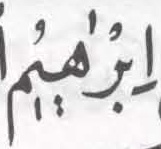 اِبْرٰهٖيْمُ